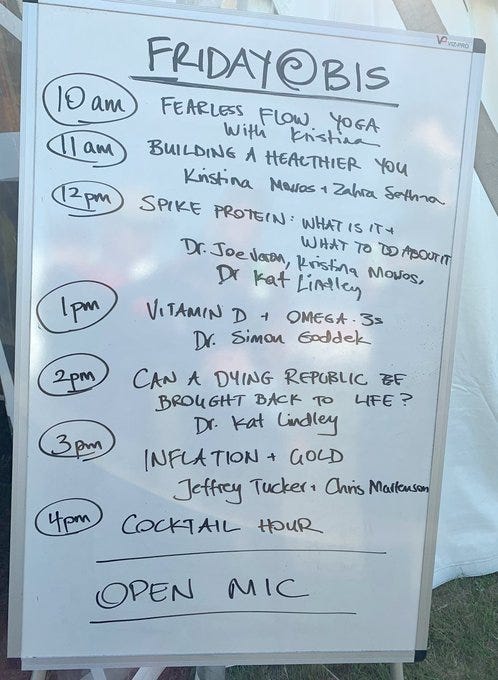 VIZ-PRO
FRIDAY@BIS
10 am FEARLESS FLOW YOGA
With Kristina
11 am BUILDING A HEALTHIER YOU
Kristina Morros + Zahra Sethna
12pm SPIKE PROTEIN: WHAT IS IT +
WHAT TO DO ABOUT IT
Dr. Joe Varon, Kristina Morros,
Dr Kat Lindley
1pm VITAMIN D + OMEGA-3s
Dr. Simon Goddek
2pm CAN A DYING REPUBLIC BE
BROUGHT BACK TO LIFE?
Dr. Kat Lindley
3pm INFLATION + GOLD
Jeffrey Tucker + Chris Martenson
4pm COCKTAIL HOUR
OPEN MIC